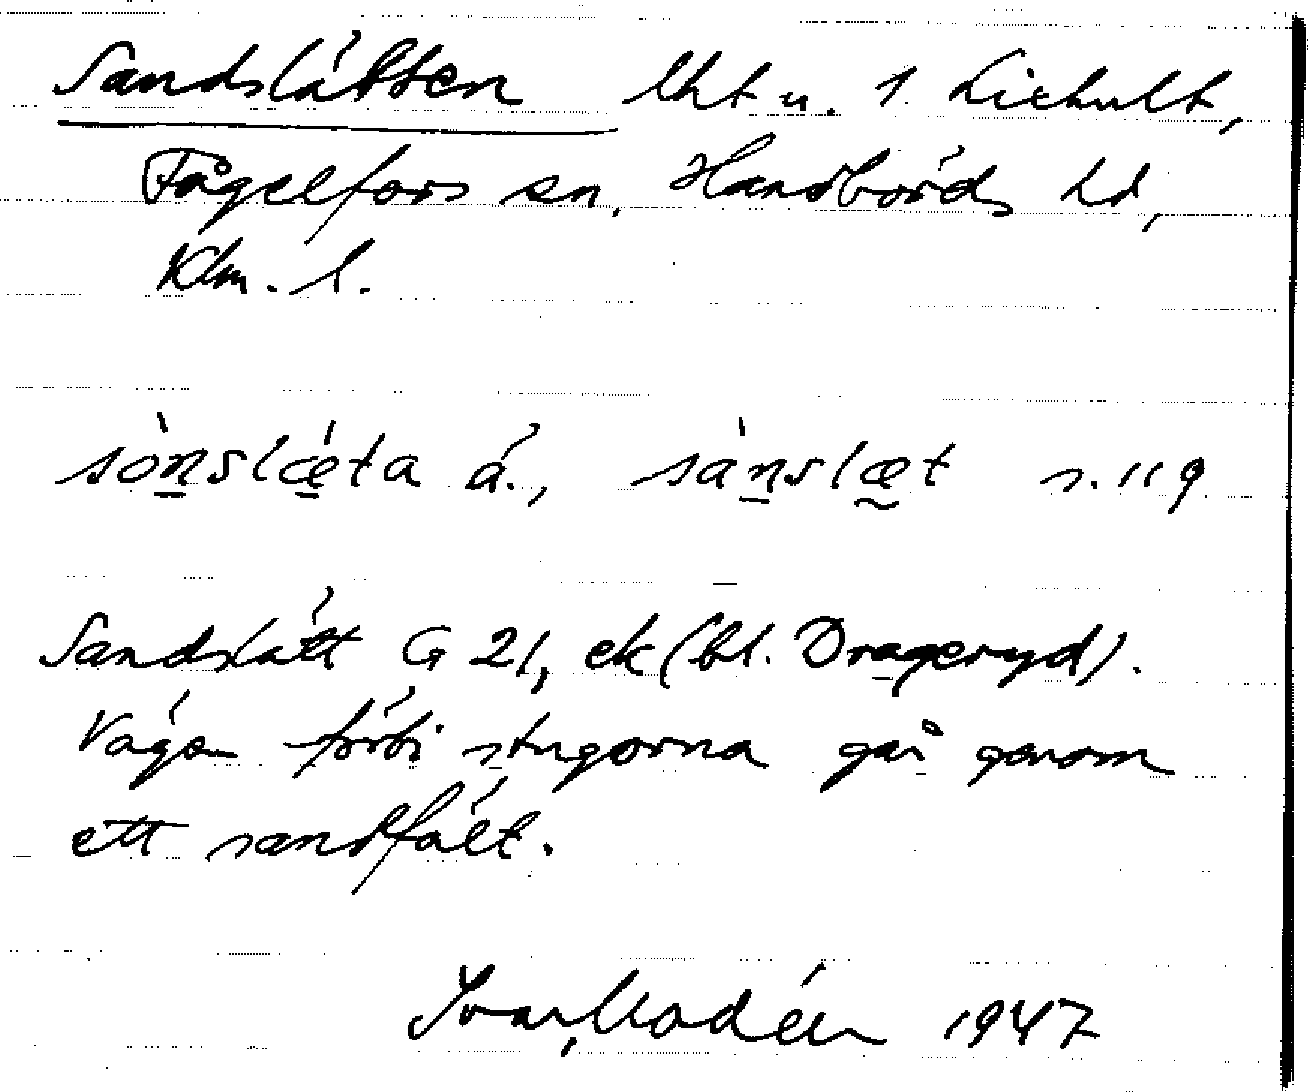 Sandslätten lht u. 1. Liehult,
Fågelfors sn, Handbörds hd,
Klm. l.
sòn̲slǽ̲ta ä., sàn̲slæ̰t s. 119
Sandslätt G 21, ek (bl. Drageryd).
Vägen förbi stugorna går genom
ett sandfält.
Ivar Modéer 1947